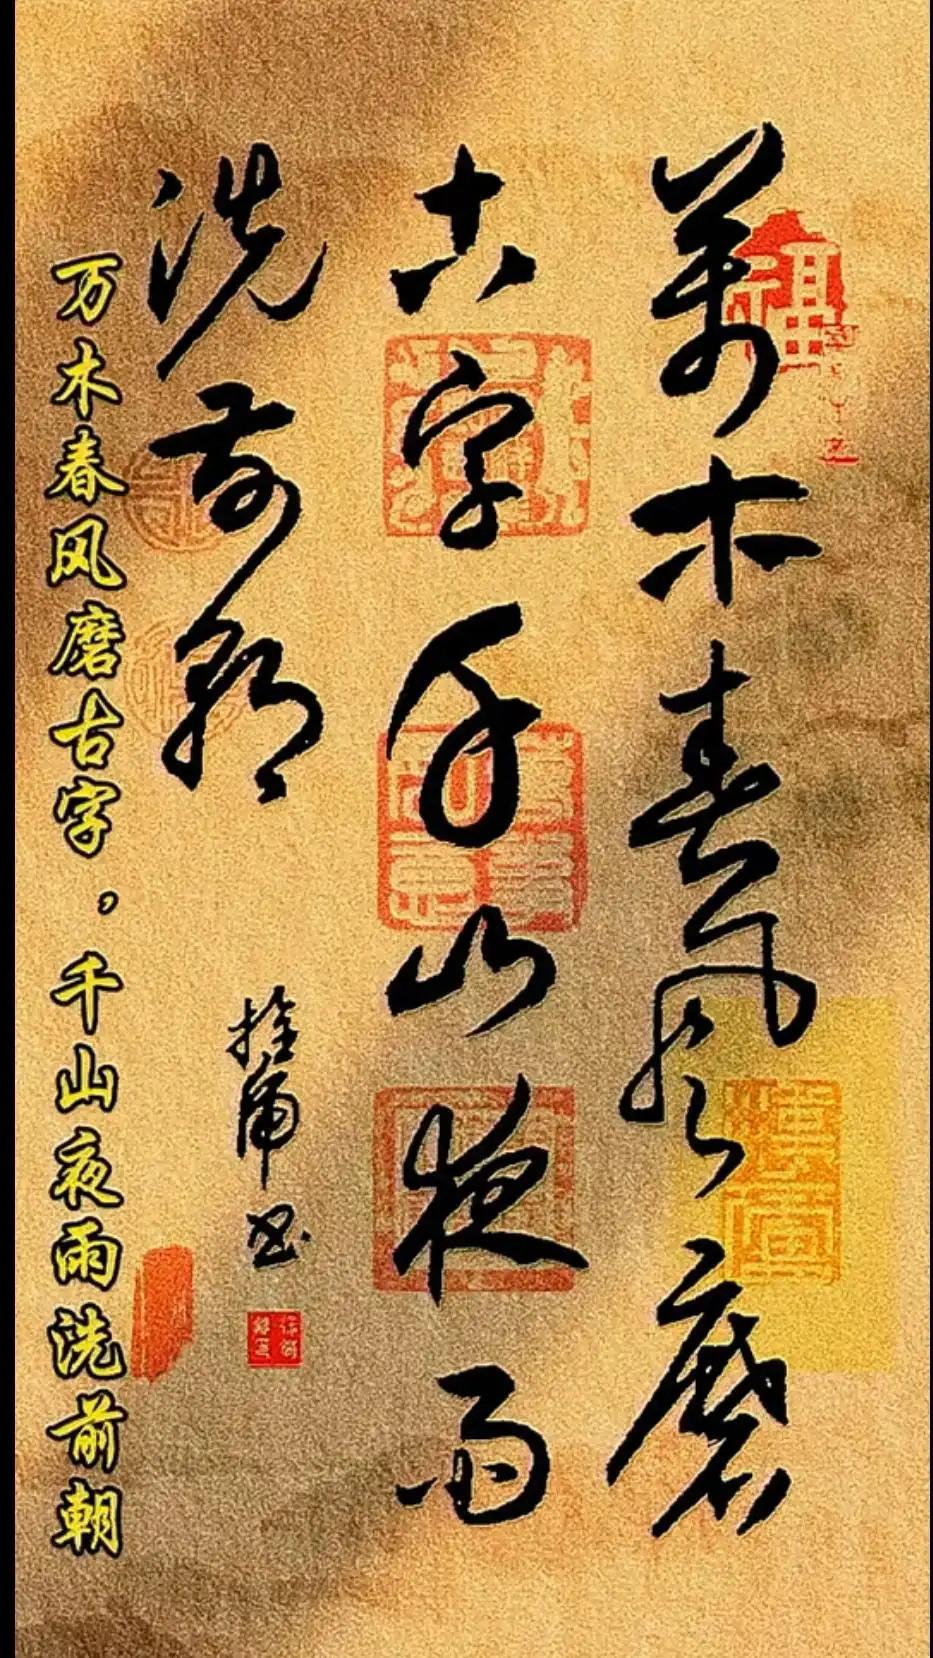 萬木春風磨
古字千山夜雨
洗前朝
万木春风磨古字，千山夜雨洗前朝